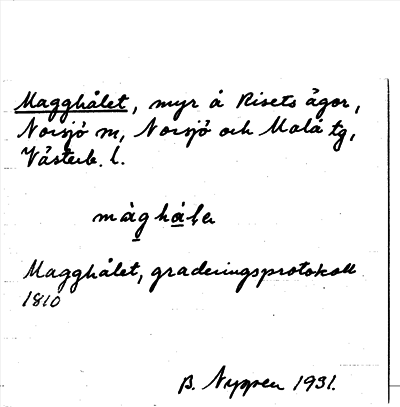 Magghålet, myr å Risets ägor,
Norsjö sn, Norsjö och Malå tg,
Västerb. l.
Magghålet, graderingsprotokoll
1810
B. Nygren 1931.